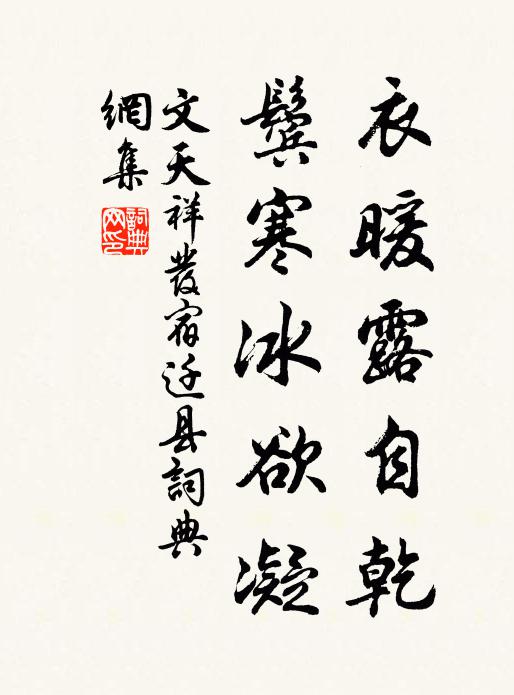 衣暖露自乾
鬢寒冰欲凝
文天祥發宿迁县詞典
網集
詞典
网印